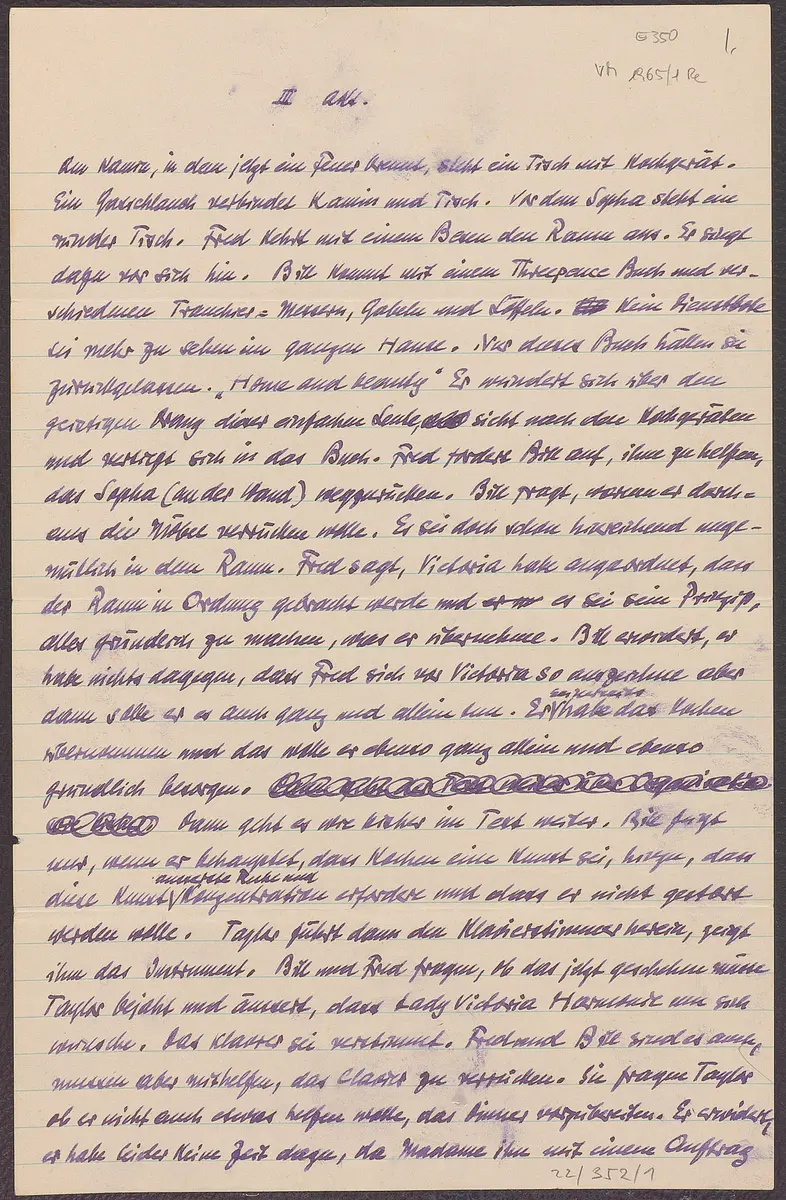 G 350
1.
VM 1965/1 Re
III Akt.
Am Kamin, in dem jetzt ein Feuer brennt, steht ein Tisch mit Kochgerät.
Ein Gasschlauch verbindet Kamin und Tisch. Vor dem Sopha steht ein
runder Tisch. Fred kehrt mit einem Besen den Raum aus. Er singt
dazu vor sich hin. Bill kommt mit einem Threepence Buch und ver-
schiedenen Tranchier= Messern, Gabeln und Löffeln. Kein Dienstbote
sei mehr zu sehen im ganzen Hause. Nur dieses Buch hätten sie
zurückgelassen. „Home and beauty" Er wundert sich über den
geistigen Drang dieser einfachen Leute sieht nach den Kochgeräten
und vertieft sich in das Buch. Fred fordert Bill auf, ihm zu helfen,
das Sopha (an der Wand) wegzurücken. Bill fragt, warum er durch=
aus die Möbel verrücken wolle. Es sei doch schon hinreichend unge-
mütlich in dem Raum. Fred sagt, Victoria habe angeordnet, dass
der Raum in Ordnung gebracht werde und es sei sein Prinzip,
alles gründlich zu machen, was er übernehme. Bill erwidert, er
habe nichts dagegen, dass Fred sich vor Victoria so auszeichne aber
dann solle er es auch ganz und allein tun. Er seinerseits habe das Kochen
übernommen und das wolle er ebenso ganz allein und ebenso
gründlich besorgen.
Dann geht es wie bisher im Text weiter. Bill fügt
nur, wenn er behauptet, dass Kochen eine Kunst sei, hinzu, dass
diese Kunst äusserste Ruhe und Konzentration erfordere und dass er nicht gestört
werden wolle. Taylor führt dann den Klavierstimmer herein, zeigt
ihm das Instrument. Bill und Fred fragen, ob das jetzt geschehen müsse
Taylor bejaht und äussert, dass Lady Victoria Harmonie um sich
wünsche. Das Klavier sei verstimmt. Fred und Bill sind es auch,
müssen aber mithelfen, das Clavier zu verrücken. Sie fragen Taylor
ob er nicht auch etwas helfen wolle, das Dinner vorzubereiten. Er erwidert,
er habe leider keine Zeit dazu, da Madame ihn mit einem Auftrag
22/352/1